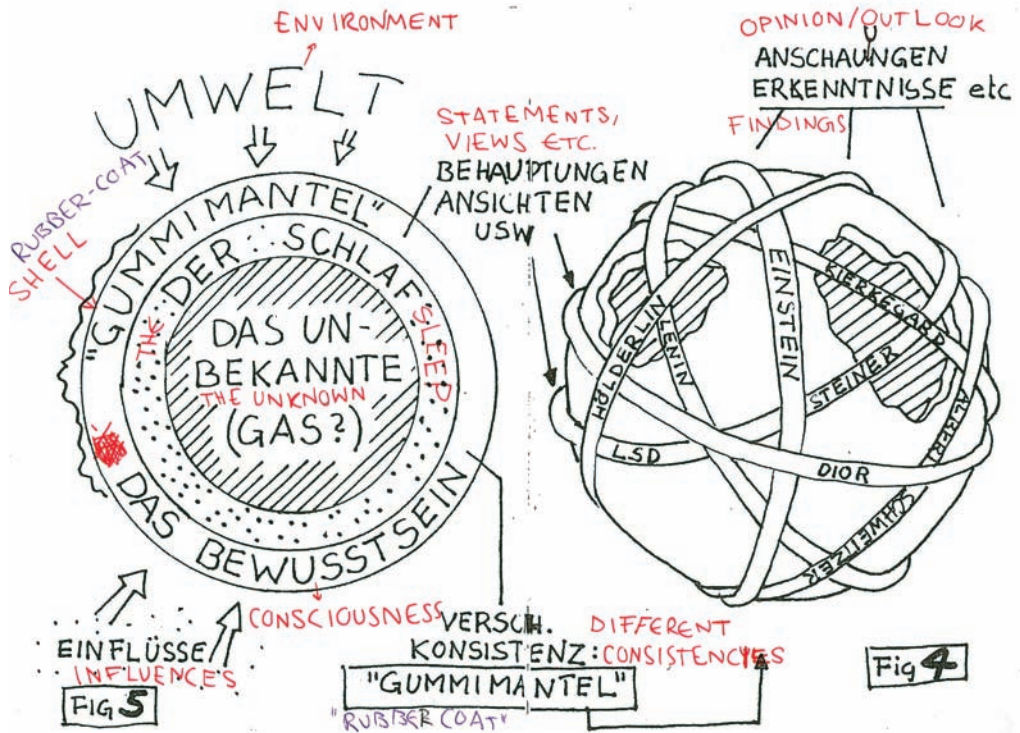 ENVIRONMENT
UMWELT
RUBBER-COAT
SHELL
"GUMMIMANTEL"
THE
DER SCHLAF
SLEEP
DAS UN-
BEKANNTE
THE UNKNOWN
(GAS?)
DAS BEWUSSTSEIN
CONSCIOUSNESS
EINFLÜSSE
INFLUENCES
FIG 5
STATEMENTS,
VIEWS ETC.
BEHAUPTUNGEN
ANSICHTEN
USW
VERSCH.
KONSISTENZ:
DIFFERENT
CONSISTENCIES
"GUMMIMANTEL"
"RUBBER COAT"
OPINION/OUTLOOK
U
ANSCHAUNGEN
ERKENNTNISSE etc
FINDINGS
HÖLDERLIN
LENIN
EINSTEIN
KIERKEGARD
STEINER
LSD
DIOR
ALBERT
SCHWEITZER
Fig 4